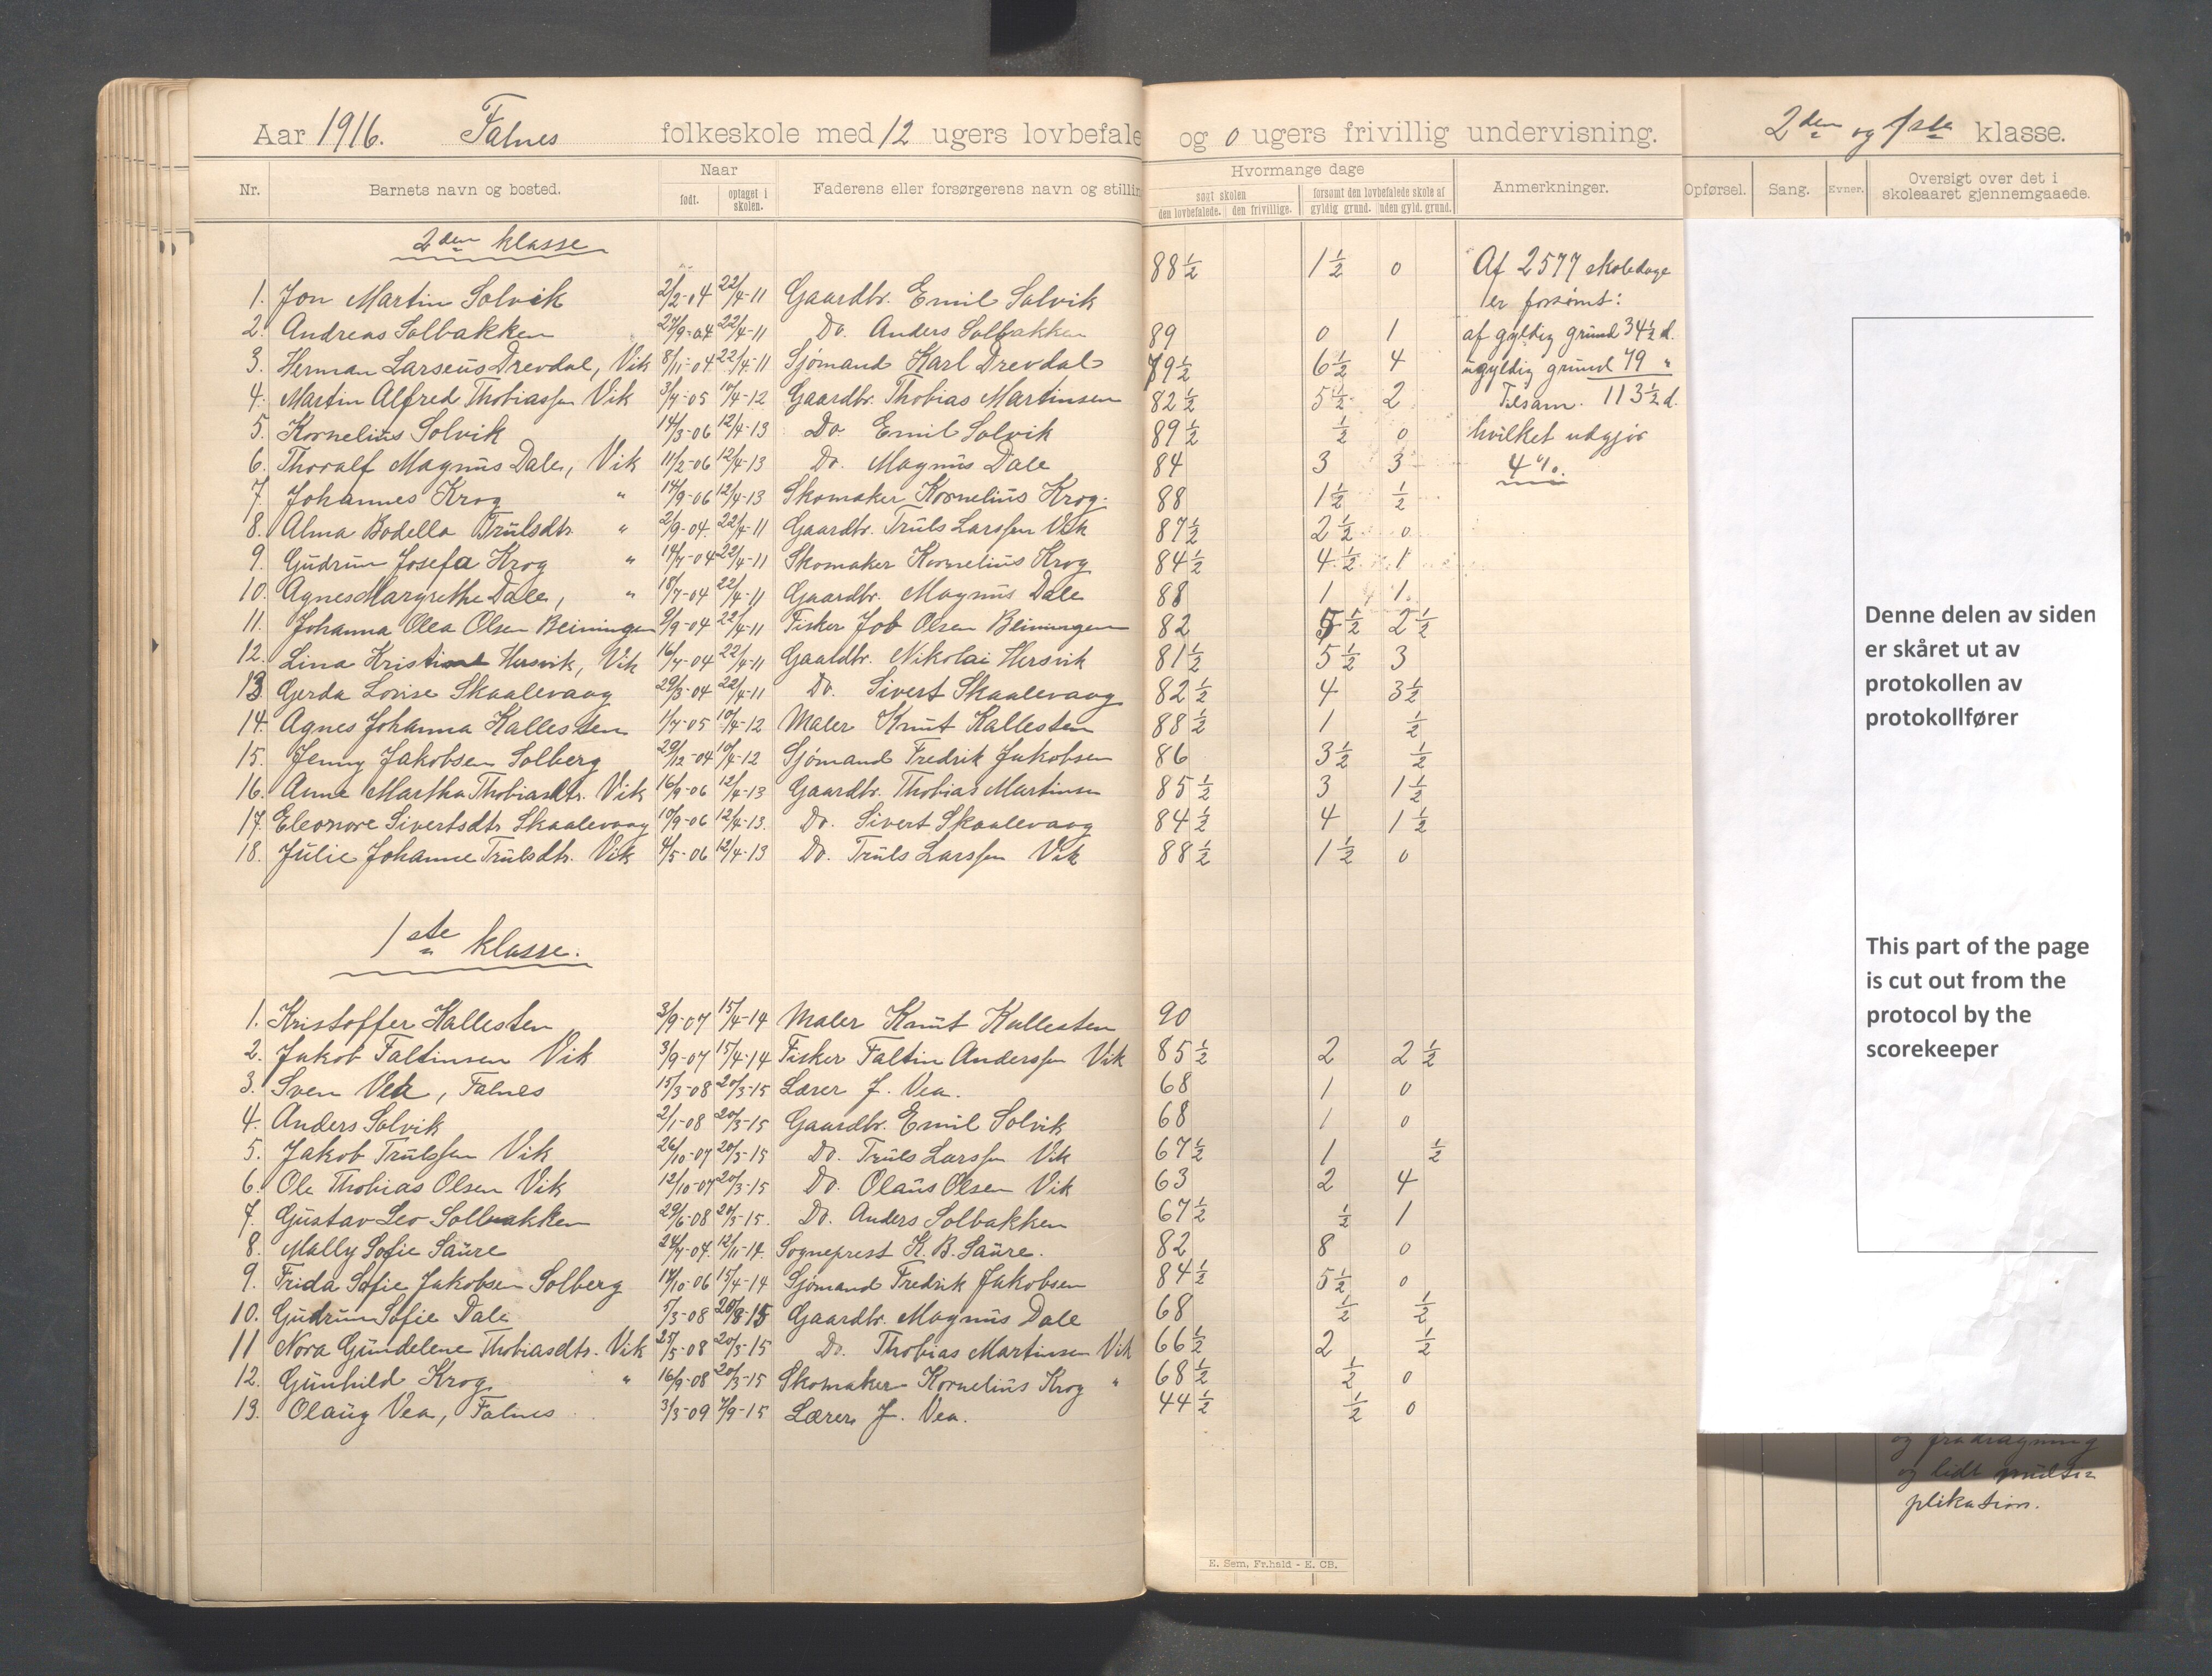 Aar 1916. Falnes folkeskole med 12 ugers lovbefale og 0 ugers frivillig undervisning. 2den og 1ste klasse.
Nr. Barnets navn og bosted. Naar født. optaget i skolen. Faderens eller forsørgerens navn og stillin Hvormange dage søgt skolen den lovbefalede. den frivillige. forsømt den lovbefalede skole af gyldig grund. uden gyld. grund. Anmerkninger. Opførsel. Sang. Evner. Oversigt over det i skoleaaret gjennemgaaede.
2den klasse
1. Jon Martin Solvik 2/2-04 22/4-11 Gaardbr. Emil Solvik 88 1/2 1 1/2 0 Af 2577 skoledage
er forsømt:
2. Andreas Solbakken 27/9-04 22/4-11 Do. Anders Solbakken 89 0 1 af gyldig grund 34 1/2 d.
3. Herman Larseus Drevdal, Vik 8/11-04 22/4-11 Sjømand Karl Drevdal 79 1/2 6 1/2 4 ugyldig grund 79 "
4. Martin Alfred Thobiassen Vik 3/7-05 10/4-12 Gaardbr. Thobias Martinsen 82 1/2 5 1/2 2 Tilsam. 113 1/2 d.
5. Kornelius Solvik 14/3-06 12/4-13 Do. Emil Solvik 89 1/2 1/2 0 hvilket udgjør
6. Thoralf Magnus Dale, Vik 11/2-06 12/4-13 Do. Magnus Dale 84 3 3 4 %.
7. Johannes Krog " 14/9-06 12/4-13 Skomaker Kornelius Krog. 88 1 1/2 1/2
8. Alma Bodella Trulsdtr. " 2/9-04. 22/4-11 Gaardbr. Truls Larssen Vik 87 1/2 2 1/2 0
9. Gudrun Josefa Krog " 14/7-04 22/4-11 Skomaker Kornelius Krog 84 1/2 4 1/2 1
10. Agnes Margrethe Dale, " 18/7-04 22/4-11 Gaardbr. Magnus Dale 88 1 1.
11. Johanna Olea Olsen Beiningen 9/9-04 22/4-11 Fisker Job Olsen Beiningen 82 5 1/2 2 1/2
12. Lina Kristine Hersvik, Vik 16/7-04 22/4-11 Gaardbr. Nikolai Hersvik 81 1/2 5 1/2 3
13 Gerda Lovise Skaalevaag 29/3-04 22/4-11 Do. Sivert Skaalevaag 82 1/2 4 3 1/2
14. Agnes Johanna Kallesten 1/7-05 10/4-12 Maler Knut Kallesten 88 1/2 1 1/2
15. Jenny Jakobsen Solberg 29/12-04 10/4-12 Sjømand Fredrik Jakobsen 86 3 1/2 1/2
16. Anne Martha Thobiasdtr. Vik 16/9-06 12/4-13 Gaardbr. Thobias Martinsen 85 1/2 3 1 1/2
17. Eleonore Sivertsdtr. Skaalevaag 10/9-06 12/4-13. Do. Sivert Skaalevaag 84 1/2 4 1 1/2
18. Julie Johanne Trulsdtr. Vik 4/5-06 12/4-13 Do. Truls Larssen Vik 88 1/2 1 1/2 0
1ste klasse.
1. Kristoffer Kallesten 3/9-07 15/4-14 Maler Knut Kallesten 90
2. Jakob Faltinsen Vik 3/9-07 15/4-14 Fisker Faltin Anderssen Vik 85 1/2 2 2 1/2
3. Sven Vea, Falnes 15/3-08 20/3-15 Lærer J. Vea. 68 1 0
4. Anders Solvik 2/1-08 20/3-15 Gaardbr. Emil Solvik 68 1 0
5. Jakob Trulssen Vik 26/10-07 20/3-15 Do. Truls Larssen Vik 67 1/2 1 1/2
6. Ole Thobias Olsen Vik 12/10-07 20/3-15 Do. Olaus Olsen Vik 63 2 4
7. Gustav Leo Solbakken 29/6-08 20/3-15. Do. Anders Solbakken 67 1/2 1/2 1
8. Mally Sofie Saure 24/7-07. 12/11-14. Sogneprest K. B. Saure. 82 8 0
9. Frida Sofie Jakobsen Solberg 14/10-06 15/4-14 Sjømand Fredrik Jakobsen 84 1/2 5 1/2 0
10. Gudrun Sofie Dale 5/3-08 20/3-15 Gaardbr. Magnus Dale 68 1/2 1/2
11 Nora Gundelene Thobiasdtr. Vik 25/5-08 20/3-15 Do. Thobias Martinsen Vik 66 1/2 2 1/2
12. Gunhild Krog " 16/9-08 20/3-15 Skomaker Kornelius Krog " 68 1/2 1/2 0
13. Olaug Vea, Falnes 3/3-09 7/9-15 Lærer J. Vea. 44 1/2 1/2 0
Denne delen av siden
er skåret ut av
protokollen av
protokollfører
This part of the page
is cut out from the
protocol by the
scorekeeper
og fradragning
og lidt multi
plikation.
E. Sem, Fr.hald - E. CB.